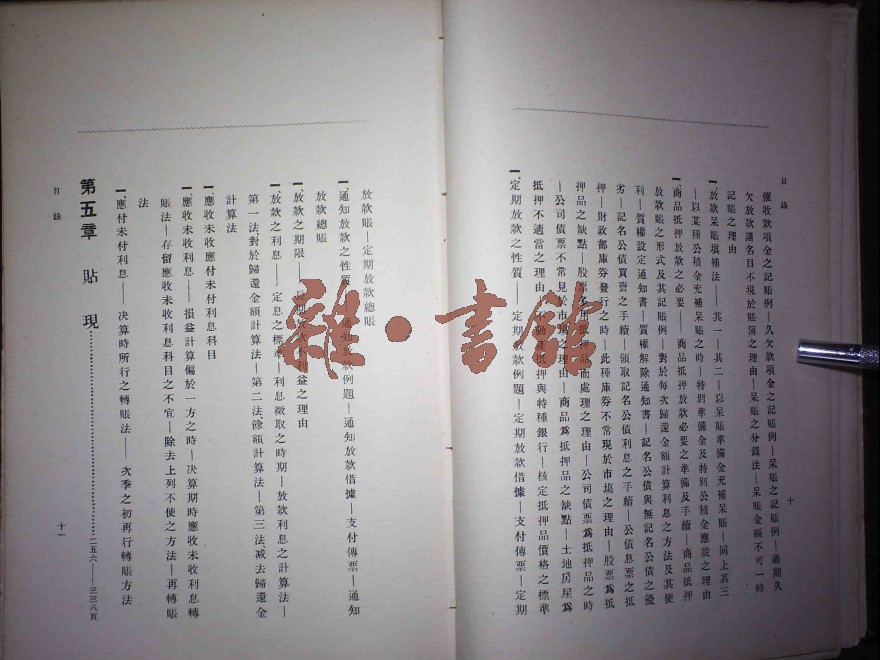 目錄
十
催收款項金之記賬例—久欠款項金之記賬例—呆賬之記賬例—過期久
欠放款諸名目不現於賬簿之理由—呆賬之分錄法—呆賬金額不可一時
記賬之理由
一、放款呆賬填補法——其一—其二—以呆賬準備金充補呆賬—同上其三
—以某種公積金充補呆賬之時—特別準備金及特別公積金應設之理由
一、商品抵押放款之必要——商品抵押放款必要之準備及手續—商品抵押
放款賬之形式及其記賬例—對於每次歸還金額計算利息之方法及其便
利—質權設定通知書—質權解除通知書—記名公債與無記名公債之優
劣—記名公債買賣之手續—領取記名公債利息之手續—公債息票之抵
押—財政部庫券發行之時—此種庫券不常現於市塲之理由—股票爲抵
押品之缺點—股票多用抵押品而處理之理由—公司債票爲抵押品之時
—公司債票不常見於市塲之理由—商品爲抵押品之缺點—土地房屋爲
抵押不適當之理由—不動產抵押與特種銀行—核定抵押品價格之標準
一、定期放款之性質——定期放款例題—定期放款借據—支付傳票—定期
放款賬—定期放款總賬
一、通知放款之性質——通知放款例題—通知放款借據—支付傳票—通知
放款總賬
一、放款之期限——長期放款不利益之理由
一、放款之利息——定息之標準—利息徵取之時期—放款利息之計算法—
第一法、對於歸還金額計算法—第二法、餘額計算法—第三法、減去歸還金
計算法
一、應收未收應付未付利息科目
一、應收未收利息——損益計算偏於一方之時—決算期時應收未收利息轉
賬法—存留應收未收利息科目之不宜—除去上列不便之方法—再轉賬
法
一、應付未付利息——決算時所行之轉賬法——次季之初再行轉賬方法
第五章 貼現…………二五六——三三八頁
目錄
十一
雜·書館